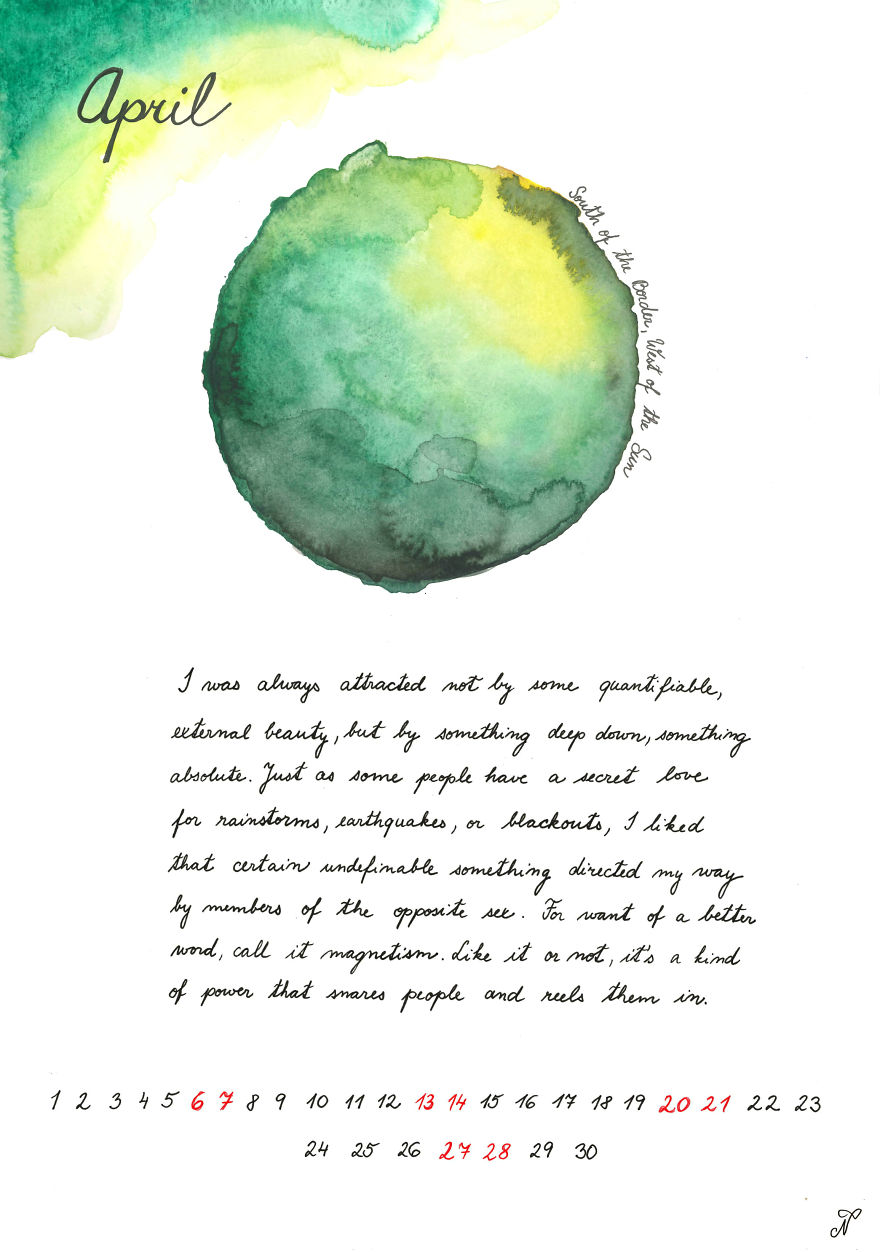 April
South of the Border, West of the Sun
I was always attracted not by some quantifiable,
external beauty, but by something deep down, something
absolute. Just as some people have a secret love
for rainstorms, earthquakes, or blackouts, I liked
that certain undefinable something directed my way
by members of the opposite sex. For want of a better
word, call it magnetism. Like it or not, it's a kind
of power that snares people and reels them in.
1 2 3 4 5 6 7 8 9 10 11 12 13 14 15 16 17 18 19 20 21 22 23
24 25 26 27 28 29 30